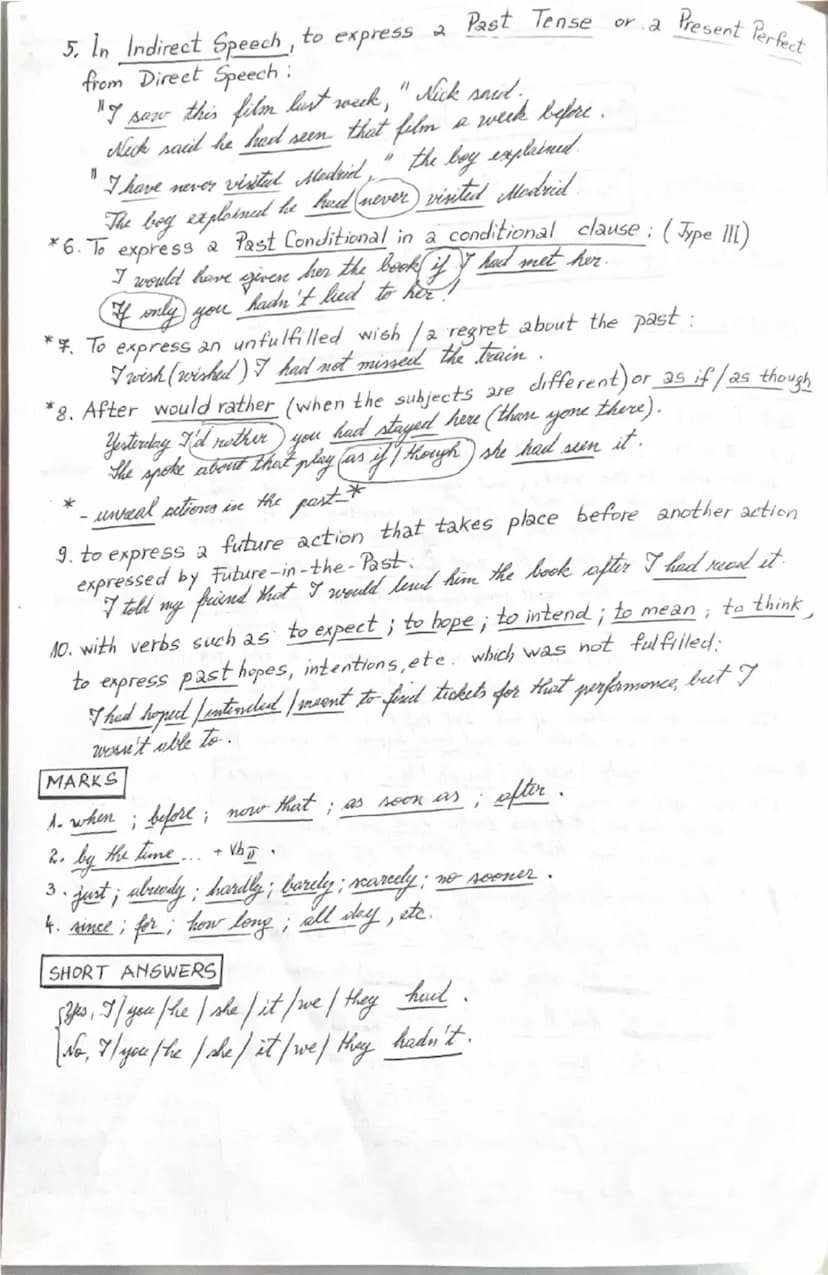 5. In Indirect Speech, to express a Past Tense or a Present Perfect
from Direct Speech:
"I saw this film last week," Nick said.
Nick said he had seen that film a week before.
"I have never visited Madrid," the boy explained.
The boy explained he had never visited Madrid.
*6. To express a Past Conditional in a conditional clause: (Type III)
I would have given her the book if I had met her.
If only you hadn't lied to her!
*7. To express an unfulfilled wish / a regret about the past:
I wish (wished) I had not missed the train.
*8. After would rather (when the subjects are different) or as if / as though
Yesterday I'd rather you had stayed here (than gone there).
She spoke about that play as if / though she had seen it.
* - unreal actions in the past - *
9. to express a future action that takes place before another action
expressed by Future-in-the-Past:
I told my friend that I would lend him the book after I had read it.
10. with verbs such as to expect; to hope; to intend; to mean; to think,
to express past hopes, intentions, etc. which was not fulfilled:
I had hoped / intended / meant to find tickets for that performance, but I
wasn't able to.
MARKS
1. when; before; now that; as soon as; after.
2. by the time ... + Vb II.
3. just; already; hardly; barely; scarcely; no sooner.
4. since; for; how long; all day, etc.
SHORT ANSWERS
Yes, I / you / he / she / it / we / they had.
No, I / you / he / she / it / we / they hadn't.